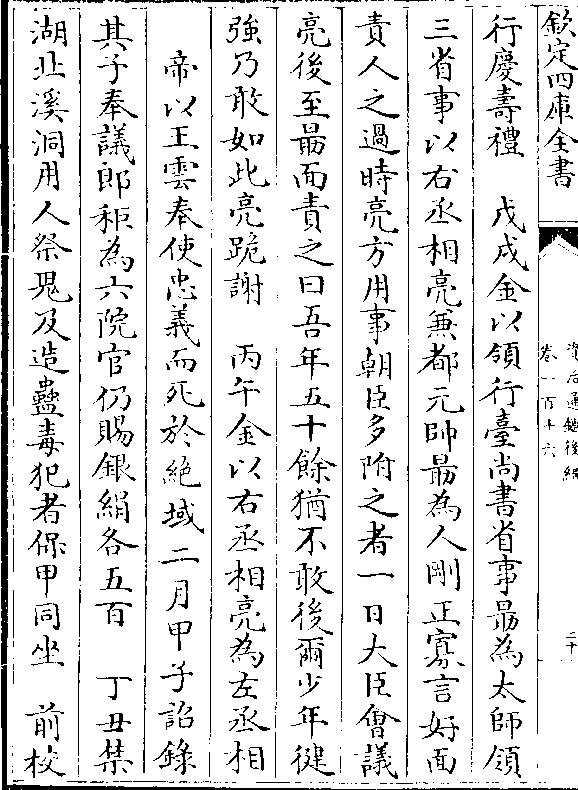 欽定四庫全書
資治通鑑後編
卷一百十六
二十
行慶壽禮　戊戌金以領行臺尚書省事勗為太師領
三省事以右丞相亮兼都元帥勗為人剛正寡言好面
責人之過時亮方用事朝臣多附之者一日大臣會議
亮後至勗面責之曰吾年五十餘猶不敢後爾少年健
強乃敢如此亮跪謝　丙午金以右丞相亮為左丞相
帝以王雲奉使忠義而死於絶域二月甲子詔錄
其子奉議郎秬為六院官仍賜銀絹各五百　丁丑禁
湖北溪洞用人祭鬼及造蠱毒犯者保甲同坐　前校